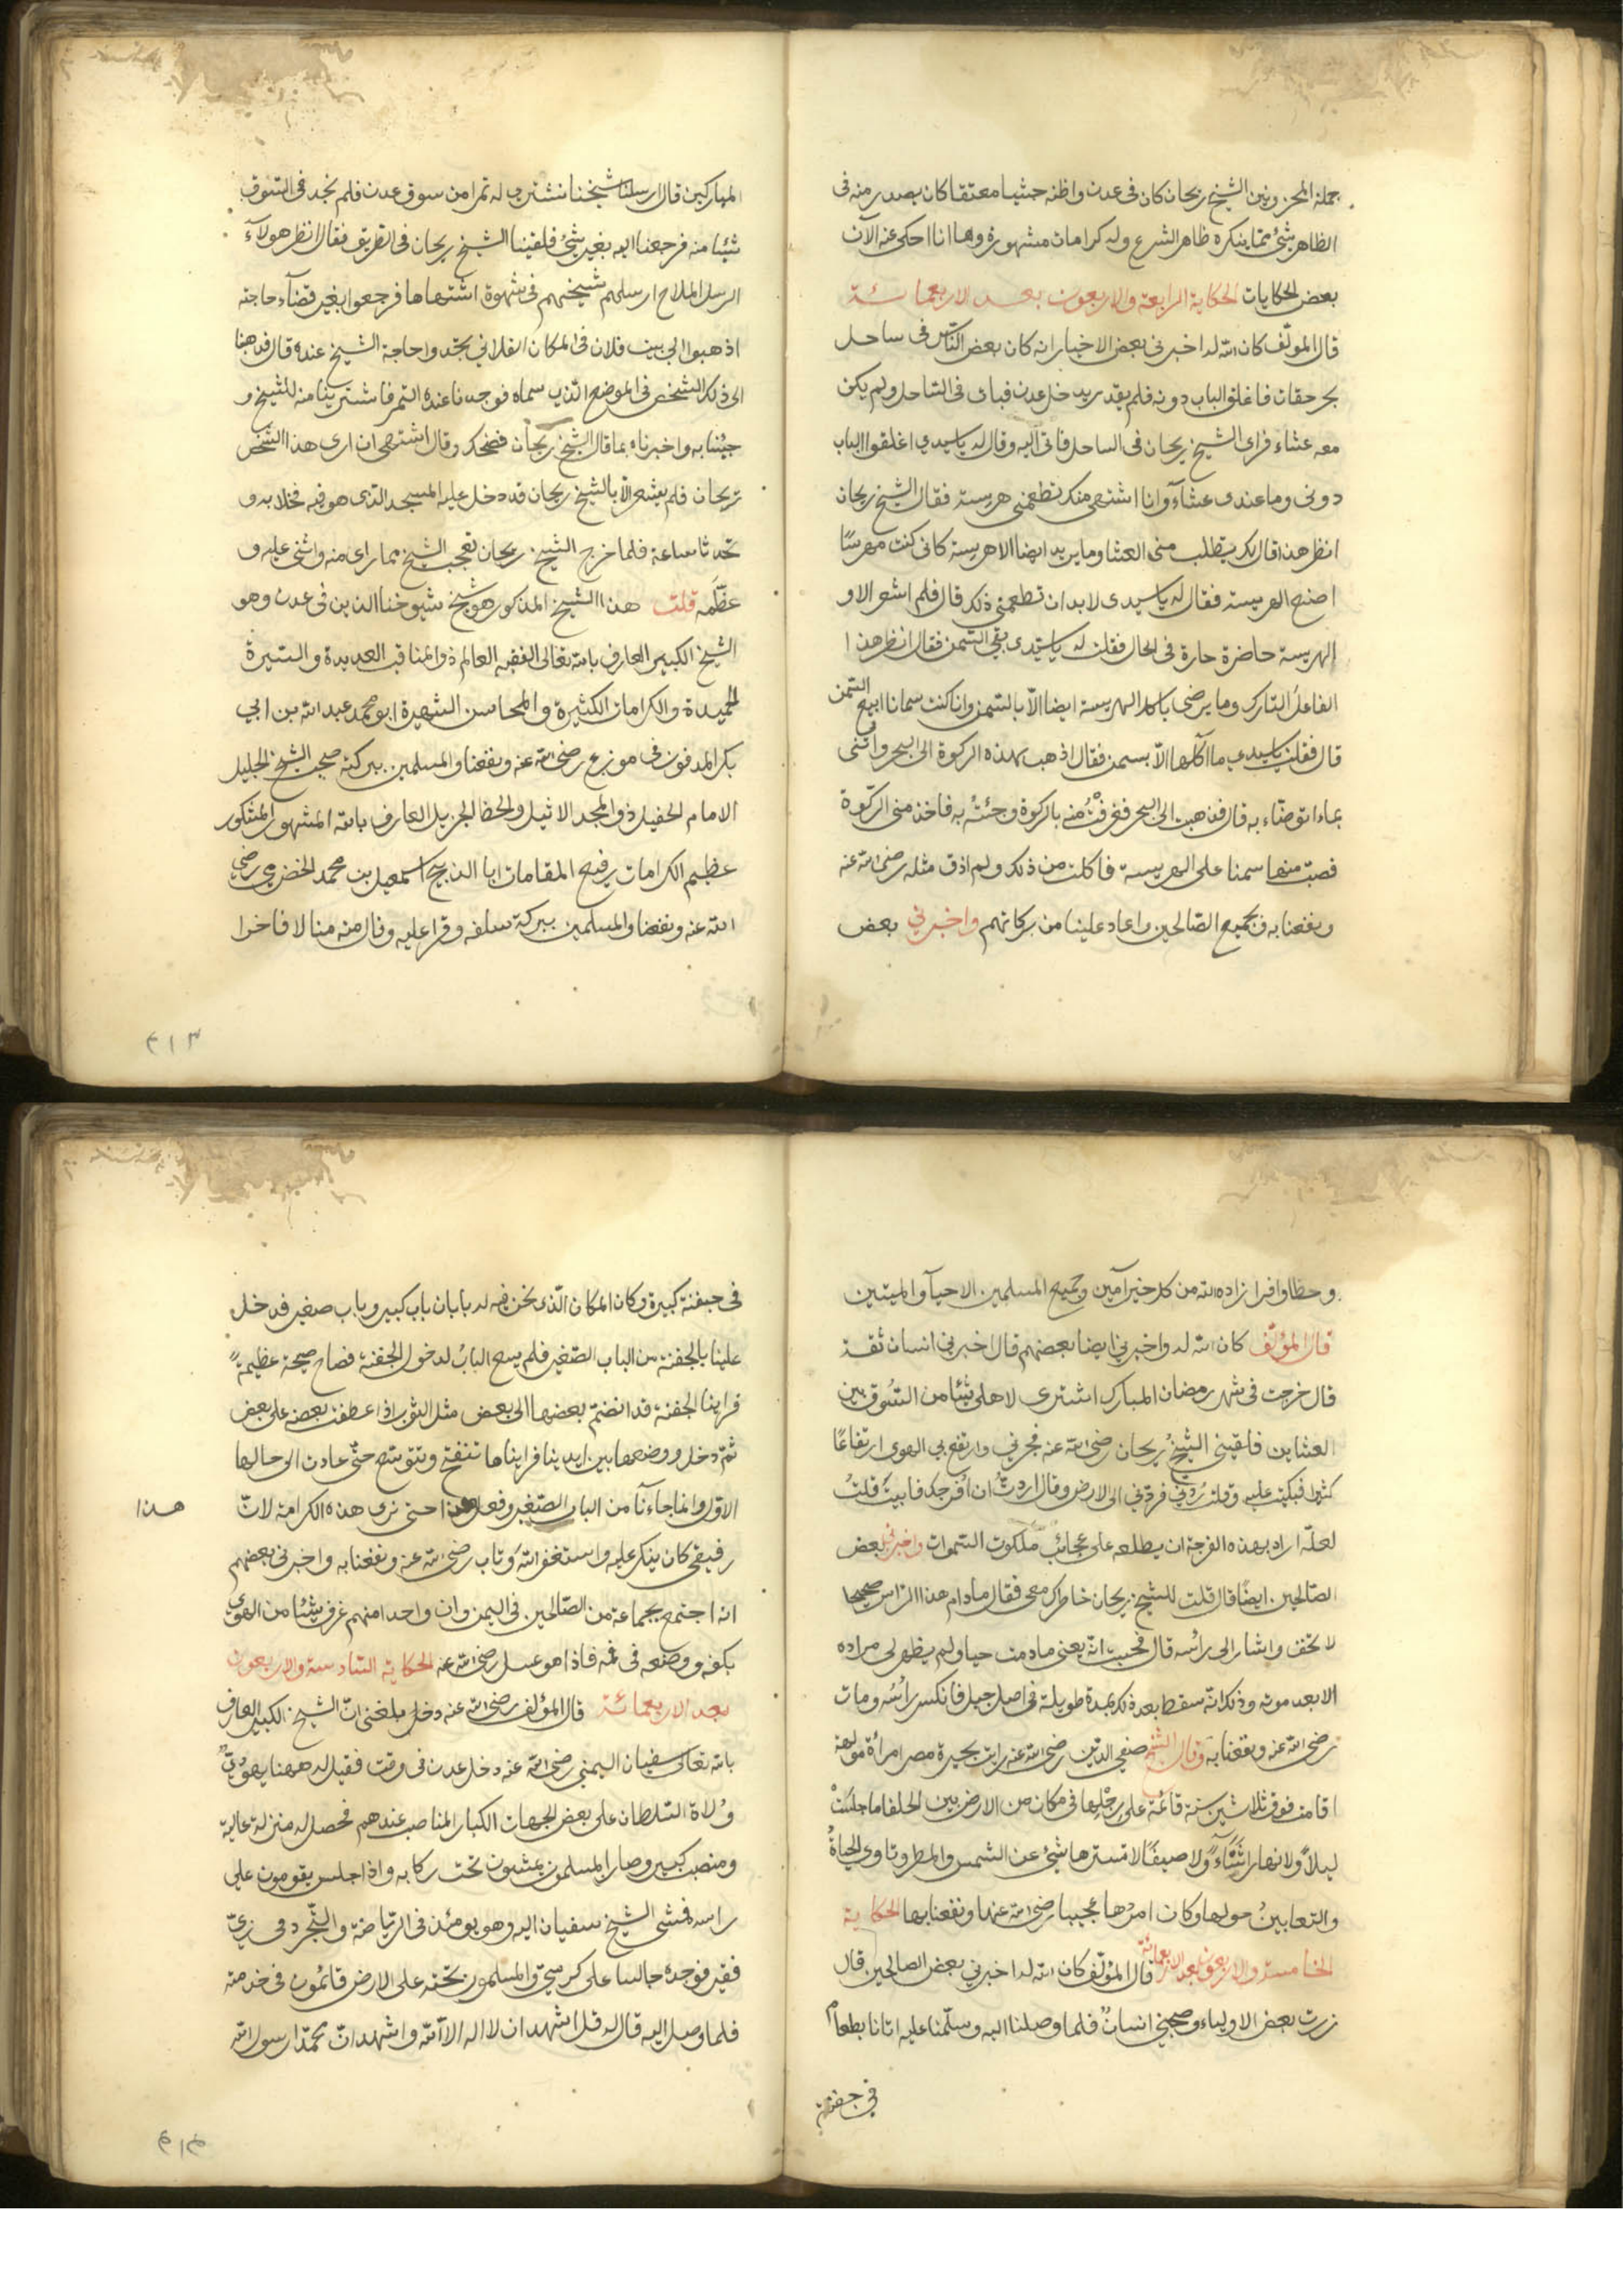 جملة المجزوبين الشيخ ريحان كان في عدن واظنه حبشيا معتقا كان يصدر منه في
الظاهر شئ مما ينكره ظاهر الشرع وله كرامات مشهورة وها انا احكي عنه الآن
بعض الحكايات الحكاية الرابعة والاربعون بعد الاربعمائة
قال المولف كان الله له اخبرني بعض الاخيار انه كان بعض الناس في ساحل
بحر حقات فاغلق الباب دونه فلم يقدر يدخل عدن فبات في الساحل ولم يكن
معه عشاء فراى الشيخ ريحان في الساحل فاتى اليه وقال له ياسيدي اغلقوا الباب
دوني وما عندي عشآء وانا اشتهى منك تطعمني هريسة فقال الشيخ ريحان
انظر هذا قال لك يتطلب منى العشا وما يريد ايضا الا هريسة كانى كنت مهرسًا
اصنع الهريسة فقال له ياسيدى لابد ان تطعمني ذلك قال فلم اشعر الا و
الهريسة حاضرة حارة فى الحال فقلت له ياسيدى بقي السمن فقال انظر هذا
الفاعل التارك وما يرضى ياكل الهريسة ايضا الّا بالسمن وانا كنت سمانا ابيع السمن
قال فقلت ياسيدي ما اكلها الّا بسمن فقال اذهب بهذه الركوة الى البحر وأتنى
بماء اتوضاء به قال فذهبت الى البحر فغرفْتُ منه بالركوة وجئتُ به فاخذ منى الركوة
فصب منها سمنا على الهريسة فاكلت من ذلك ولم اذق مثله رضى الله عنه
ونفعنا به وبجميع الصالحين واعاد علينا من بركاتهم واخبرني بعض
المباركين قال ارسلنا شيخنا نشتري له تمرا من سوق عدن فلم نجد في السوق
شيئا منه فرجعنا اليه بغير شئ فلقينا الشيخ ريحان في الطريق فقال انظر هولآء
الرسل الملاح ارسلهم شيخهم في شهوة اشتهاها فرجعوا بغير قضآء حاجته
اذهبوا الى بيت فلان في المكان الفلاني تجدوا حاجة الشيخ عنده قال فذهبنا
الى ذلك الشخص في الموضع الذي سماه فوجدنا عنده التمر فاشترينا منه للشيخ و
جئنا به واخبرناه بما قال الشيخ ريحان فضحك وقال اشتهى ان ارى هذا الشخص
ريحان فلم يشعر الّا بالشيخ ريحان قد دخل عليه المسجد الذى هو فيه فخلا به و
تحدثا ساعة فلما خرج الشيخ ريحان تعجب الشيخ مما راى منه واثنى عليه و
عظّمه قلت هذا الشيخ المذكور هو شيخ شيوخنا الذين فى عدن وهو
الشيخ الكبير العارف بالله تعالى الفقيه العالم ذو المناقب العديدة والسيرة
الحميدة والكرامات الكثيرة والمحاسن الشهيرة ابو محمد عبد الله بن ابي
بكر المدفون فى موزع رضى الله عنه ونفعنا والمسلمين ببركته صحب الشيخ الجليل
الامام الحفيل ذو المجد الاثيل والحظ الجزيل العارف بالله المشهور المشكور
عظيم الكرامات رفيع المقامات ابا الذبيح اسمعيل بن محمد الحضرمي رضي
الله عنه ونفعنا والمسلمين ببركة سلفه وقرا عليه ونال منه منالا فاخرا
٤١٣
وحظا وافرا زاده الله من كل خير آمين وجميع المسلمين الاحيآ والميتين
قال المؤلف كان الله له واخبرني ايضا بعضهم قال اخبرنى انسان ثقة
قال خرجت فى شهر رمضان المبارك اشترى لاهلى شيئا من السوق بين
العشاين فلقينى الشيخ ريحان رضى الله عنه فجرني وارتفع بي الهوى ارتفاعًا
كثيرا فبكيت عليه وقلت رُدّني فردّني الى الارض وقال اردتُ ان اُفرجك فابيت قلت
لعلّه اراد بهذه الفرجة ان يطلعه على عجائب ملكوت السموات واخبرني بعض
الصالحين ايضًا قال قلت للشيخ ريحان خاطرك معى فقال ما دام هذا الراس صحيحا
لا تخف واشار الى راسه قال فحسبت انّه يعنى ما دمت حيا ولم يظهر لى مراده
الا بعد موته وذلك انّه سقط بعد ذلك بمدة طويلة فى اصل جبل فانكسر رائسُه ومات
رضى الله عنه ونفعنا به وقال الشيخ صفي الدين رضى الله عنه رايت بجيزة مصر امرأة مولهة
اقامت فوق ثلاثين سنة قائمة على رجليها فى مكان من الارض بين الحلفا ما جلسَتْ
ليلاً ولا نهارا شتآءً ولا صيفًا لا تسترها شئ عن الشمس والمطر وتاوي الحياةُ
والثعابينُ حولها وكان امرُها عجيبا رضى الله عنها ونفعنا بها الحكاية
الخامسة والاربعون بعد الاربعمائة قال المؤلف كان الله له اخبرني بعض الصالحين قال
زرت بعض الاولياء وصحبني انسانٌ فلما وصلنا اليه وسلّمنا عليه اتانا بطعام
في جفنة
فى جفنة كبيرة وكان المكان الذى نحن فيه له بابان باب كبير وباب صغير فدخل
علينا بالجفنة من الباب الصغير فلم يسع البابُ لدخول الجفنة فصاح صيحة عظيمة
فراينا الجفنة قد انضم بعضها الى بعض مثل الثوب اذا عطفت بعضه على بعض
ثمّ دخل ووضعها بين ايدينا فرايناها تنفتح وتتوسّع حتّى عادت الى حالها
الاوّل وانما جاءنا من الباب الصغير وفعل هذا حتى نرى هذه الكرامة لانّ
هذا
رفيقى كان ينكر عليه واستغفر الله وتاب رضى الله عنه ونفعنا به واخبرنى بعضهم
انه اجتمع بجماعة من الصالحين فى اليمن وان واحدا منهم غرف شيئا من الهوى
بكفه ووضعه فى فمه فاذا هو عسل رضى الله عنه الحكاية السادسة والاربعون
بعد الاربعمائة قال المؤلف رضى الله عنه بلغنى انّ الشيخ الكبير العارف
بالله تعالى سفيان اليمني رضى الله عنه دخل عدن فى وقت فقيل له ههنا يهوديٌّ
وُلاة السلطان على بعض الجهات الكبار المناصب عندهم فحصل له منزلة عالية
ومنصب كبير وصار المسلمون يمشون تحت ركابه واذا جلس يقومون على
راسه فمشى الشيخ سفيان اليه وهو يومئذ فى الرياضة والتجرد فى زيّ
فقير فوجده جالسا على كرسيّ والمسلمون تحته على الارض قائمون فى خدمته
فلما وصل اليه قال له قل اشهد ان لا اله الا الله واشهد انّ محمدا رسول الله
٤١٤